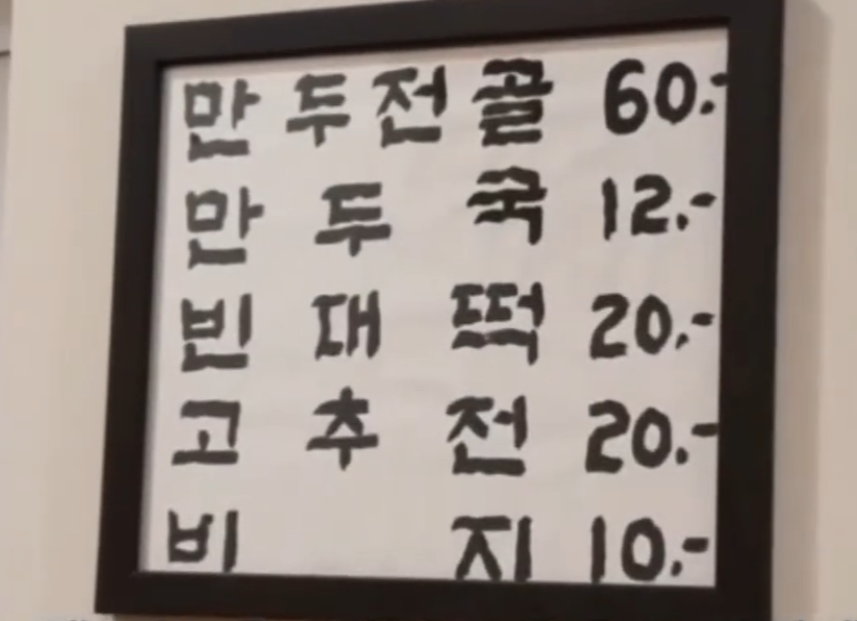 만두전골 60.-
만 두 국 12.-
빈 대 떡 20.-
고 추 전 20.-
비 지 10.-